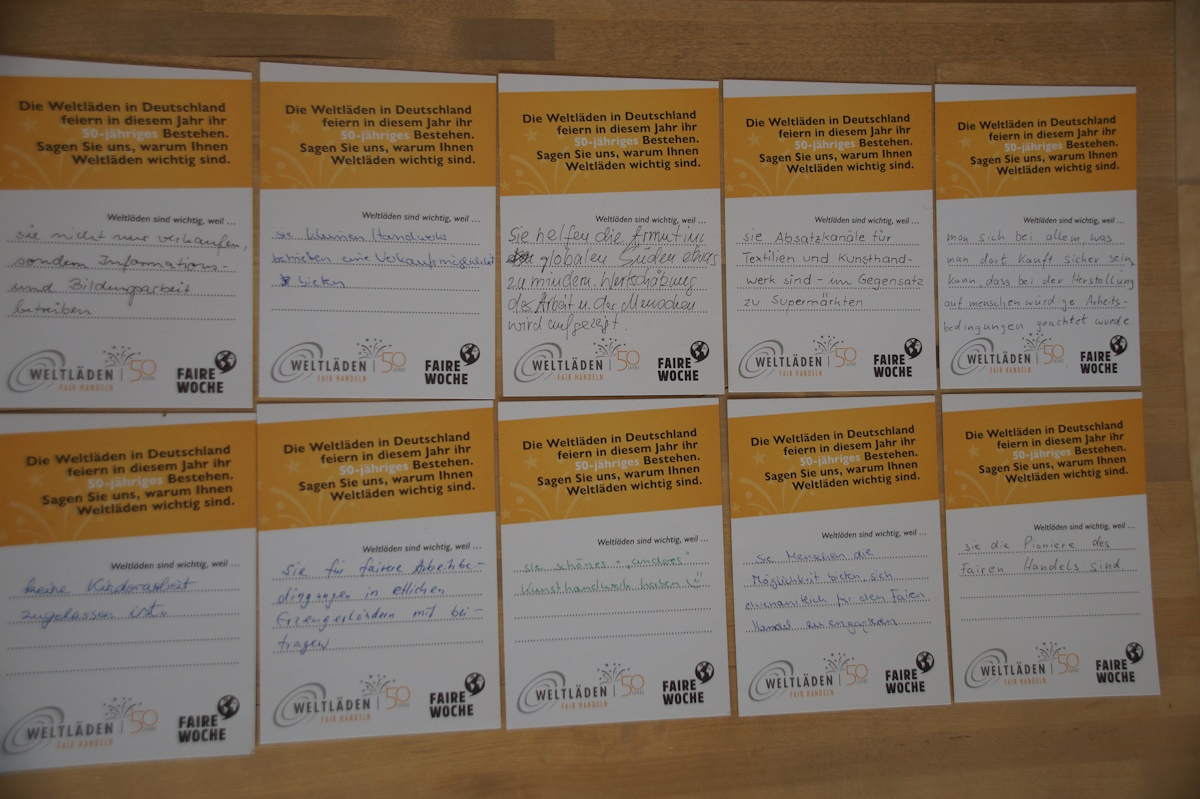 Die Weltläden in Deutschland
feiern in diesem Jahr ihr
50-jähriges Bestehen.
Sagen Sie uns, warum Ihnen
Weltläden wichtig sind.
Weltläden sind wichtig, weil ...
sie nicht nur verkaufen,
sondern Informations-
und Bildungsarbeit
betreiben
WELTLÄDEN | 50 JAHRE
FAIR HANDELN
FAIRE
WOCHE
Die Weltläden in Deutschland
feiern in diesem Jahr ihr
50-jähriges Bestehen.
Sagen Sie uns, warum Ihnen
Weltläden wichtig sind.
Weltläden sind wichtig, weil ...
sie kleinen Handwerks
betrieben eine Verkaufsmöglichkeit
bieten
WELTLÄDEN | 50 JAHRE
FAIR HANDELN
FAIRE
WOCHE
Die Weltläden in Deutschland
feiern in diesem Jahr ihr
50-jähriges Bestehen.
Sagen Sie uns, warum Ihnen
Weltläden wichtig sind.
Weltläden sind wichtig, weil ...
Sie helfen die Armut im
globalen Süden etwas
zu mindern. Wertschätzung
des Arbeit u. der Menschen
wird aufgezeigt.
WELTLÄDEN | 50 JAHRE
FAIR HANDELN
FAIRE
WOCHE
Die Weltläden in Deutschland
feiern in diesem Jahr ihr
50-jähriges Bestehen.
Sagen Sie uns, warum Ihnen
Weltläden wichtig sind.
Weltläden sind wichtig, weil ...
sie Absatzkanäle für
Textilien und Kunsthand-
werk sind - im Gegensatz
zu Supermärkten
WELTLÄDEN | 50 JAHRE
FAIR HANDELN
FAIRE
WOCHE
Die Weltläden in Deutschland
feiern in diesem Jahr ihr
50-jähriges Bestehen.
Sagen Sie uns, warum Ihnen
Weltläden wichtig sind.
Weltläden sind wichtig, weil ...
man sich bei allem was
man dort kauft sicher sein
kann, dass bei der Herstellung
auf menschenwürdige Arbeits-
bedingungen geachtet wurde.
WELTLÄDEN | 50 JAHRE
FAIR HANDELN
FAIRE
WOCHE
Die Weltläden in Deutschland
feiern in diesem Jahr ihr
50-jähriges Bestehen.
Sagen Sie uns, warum Ihnen
Weltläden wichtig sind.
Weltläden sind wichtig, weil ...
keine Kinderarbeit
zugelassen ist.
WELTLÄDEN | 50 JAHRE
FAIR HANDELN
FAIRE
WOCHE
Die Weltläden in Deutschland
feiern in diesem Jahr ihr
50-jähriges Bestehen.
Sagen Sie uns, warum Ihnen
Weltläden wichtig sind.
Weltläden sind wichtig, weil ...
Sie für fairere Arbeitsbe-
dingungen in etlichen
Erzeugerländern mit bei-
tragen
WELTLÄDEN | 50 JAHRE
FAIR HANDELN
FAIRE
WOCHE
Die Weltläden in Deutschland
feiern in diesem Jahr ihr
50-jähriges Bestehen.
Sagen Sie uns, warum Ihnen
Weltläden wichtig sind.
Weltläden sind wichtig, weil ...
sie schönes "anderes"
Kunsthandwerk haben!!
WELTLÄDEN | 50 JAHRE
FAIR HANDELN
FAIRE
WOCHE
Die Weltläden in Deutschland
feiern in diesem Jahr ihr
50-jähriges Bestehen.
Sagen Sie uns, warum Ihnen
Weltläden wichtig sind.
Weltläden sind wichtig, weil ...
sie Menschen die
Möglichkeit bieten, sich
ehrenamtlich für den Fairen
Handel zu engagieren
WELTLÄDEN | 50 JAHRE
FAIR HANDELN
FAIRE
WOCHE
Die Weltläden in Deutschland
feiern in diesem Jahr ihr
50-jähriges Bestehen.
Sagen Sie uns, warum Ihnen
Weltläden wichtig sind.
Weltläden sind wichtig, weil ...
sie die Pioniere des
Fairen Handels sind
WELTLÄDEN | 50 JAHRE
FAIR HANDELN
FAIRE
WOCHE